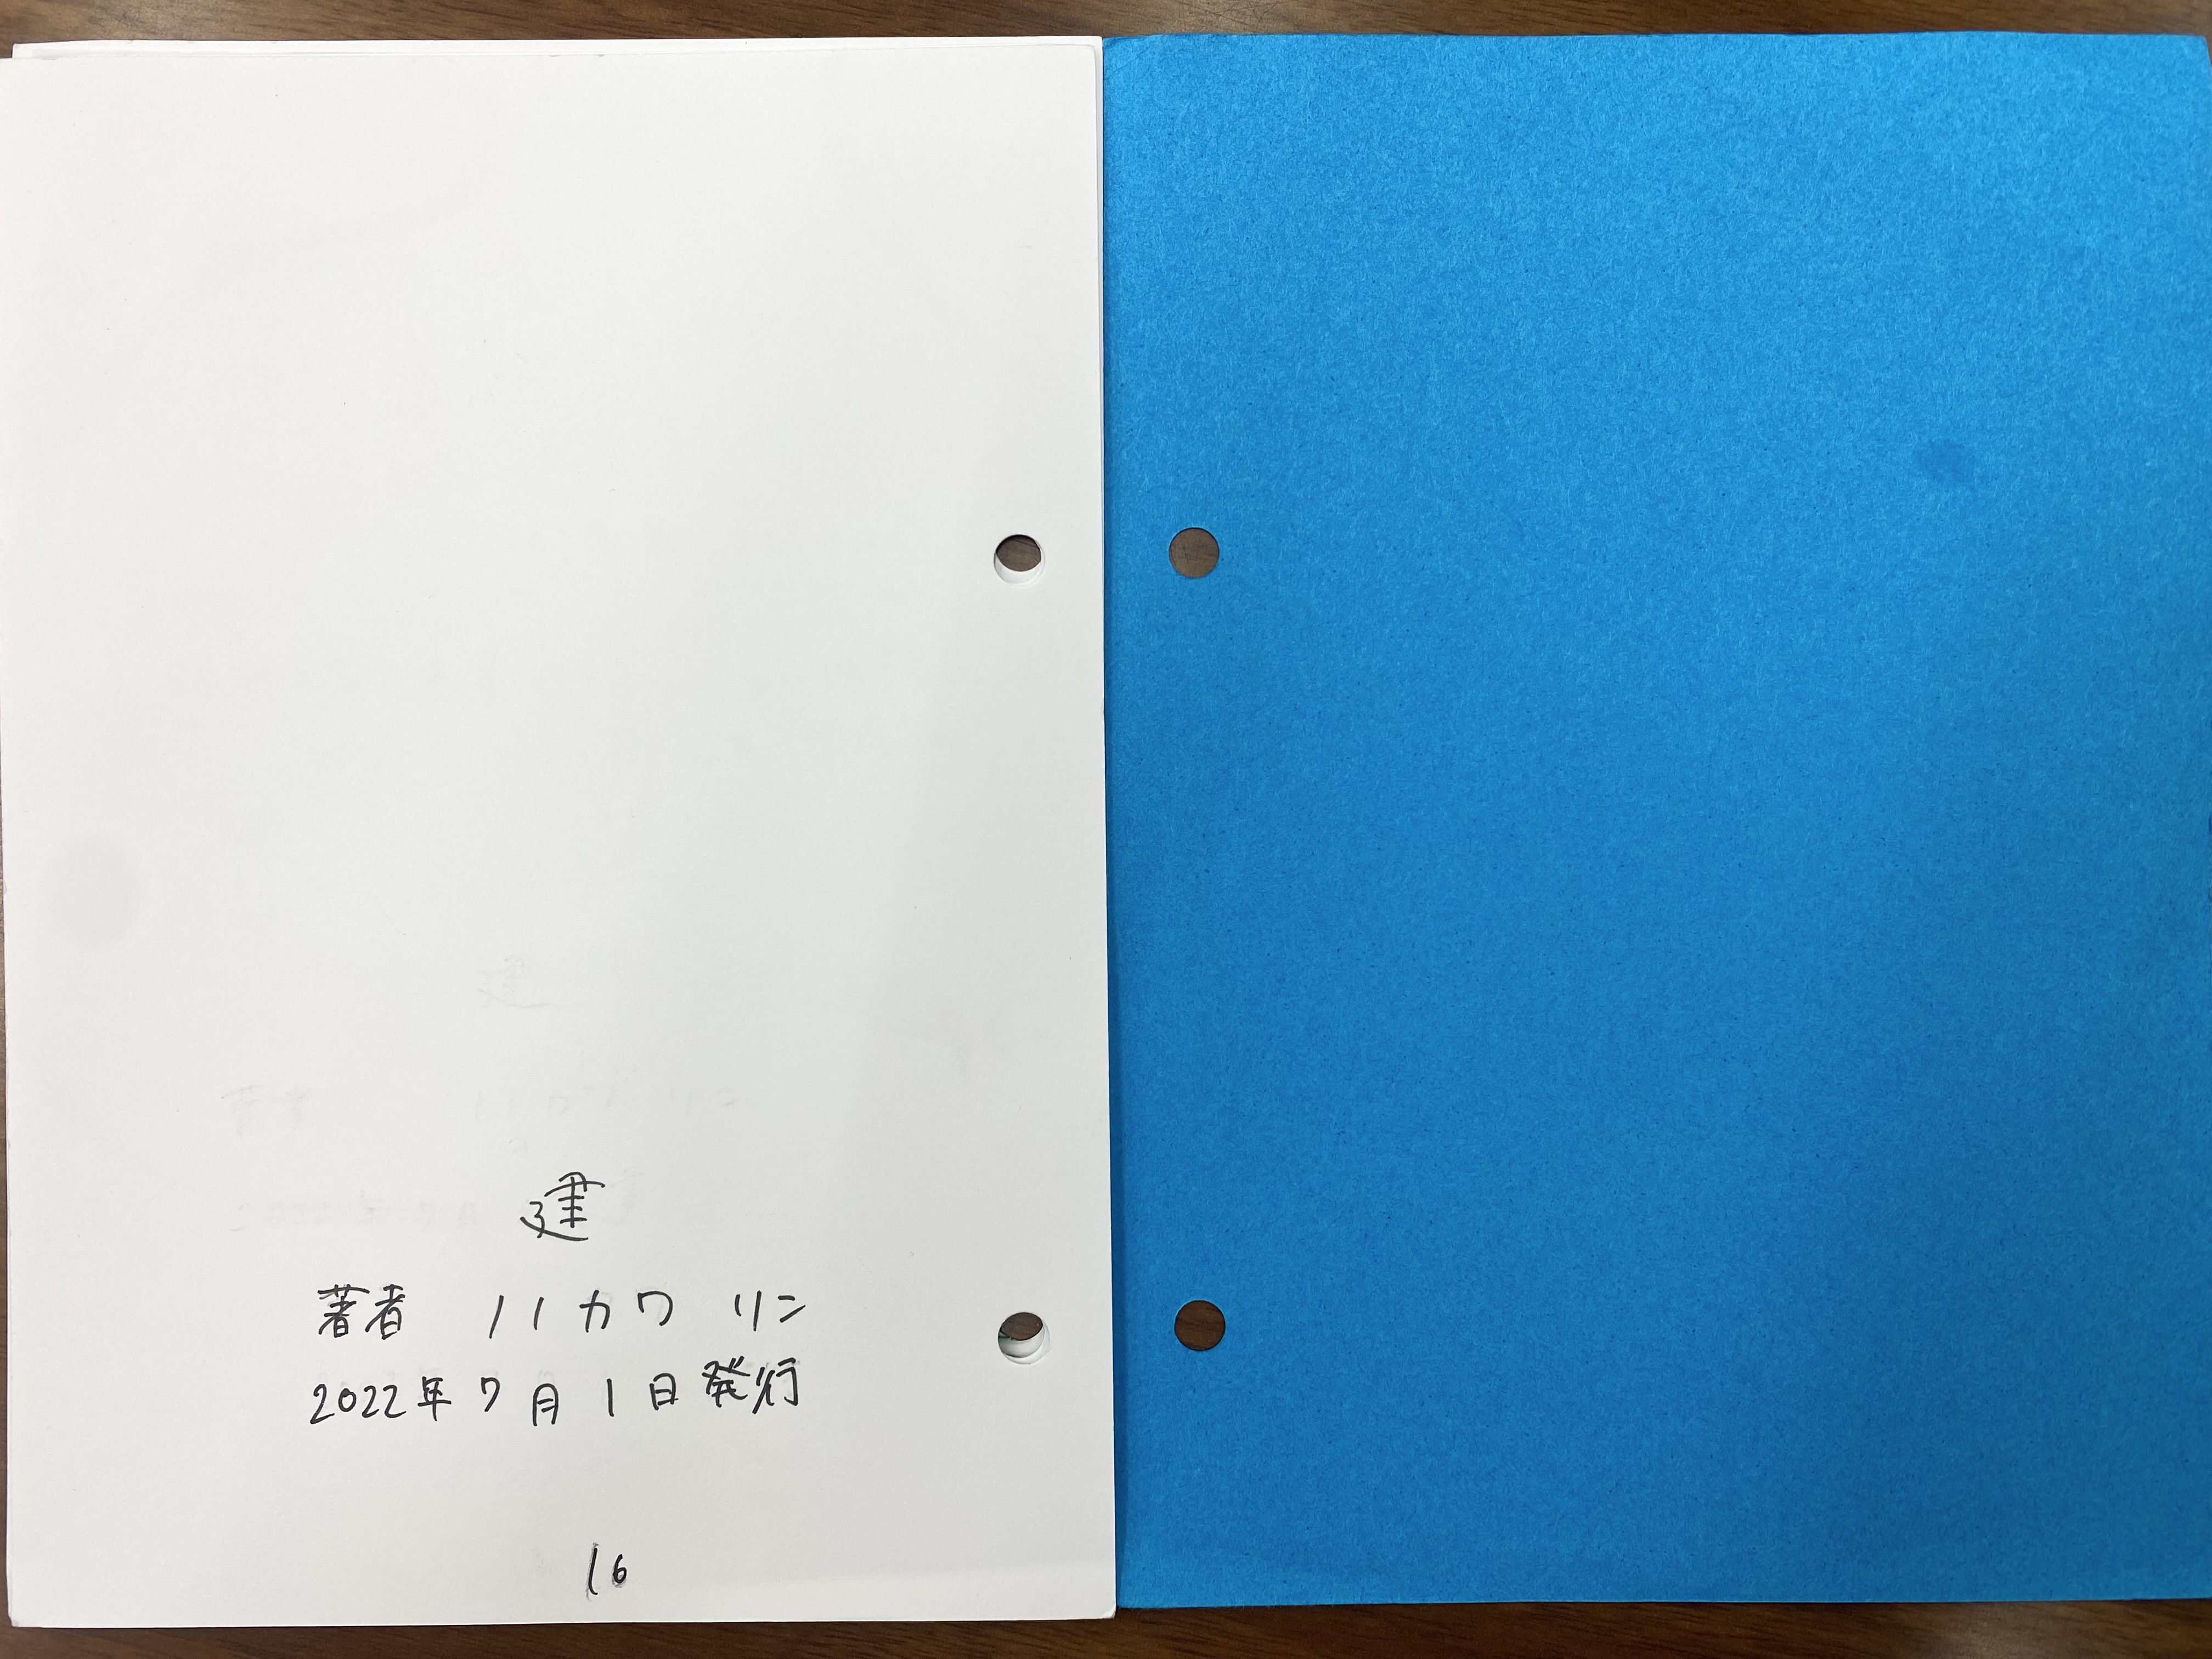 建
著者 ハカワ リン
2022年7月1日発行
16